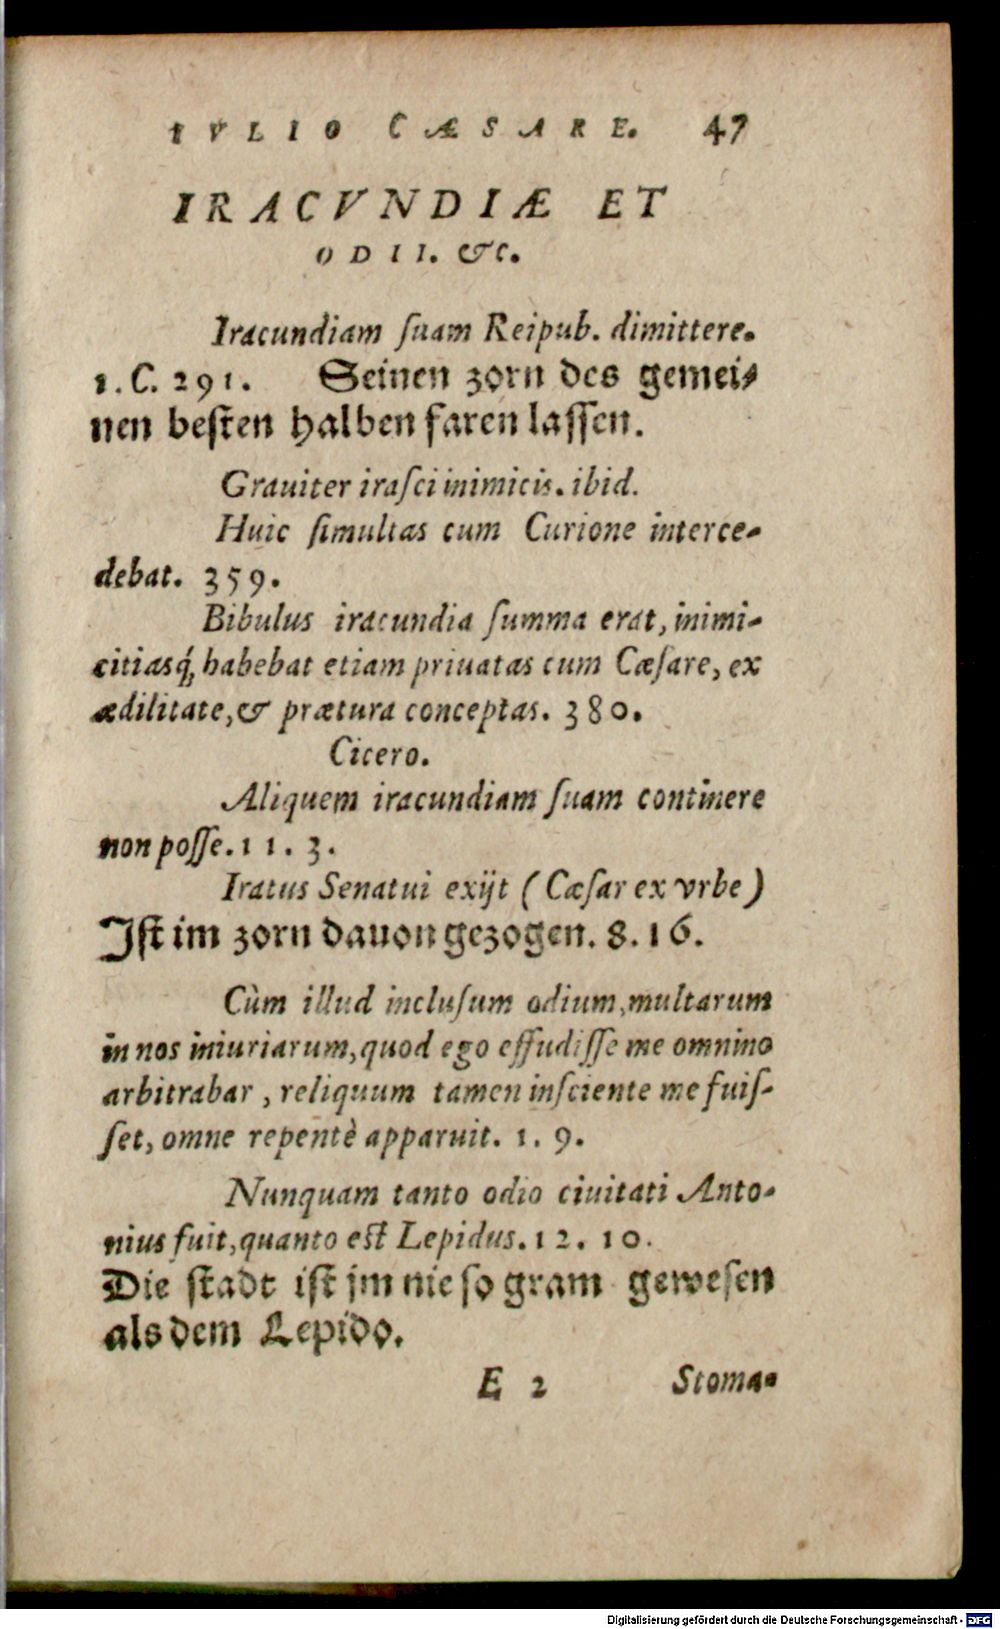 IVLIO CÆSARE. 47
IRACVNDIÆ ET
ODII. &c.
Iracundiam ſuam Reipub. dimittere.
1. C. 291. Seinen zorn des gemei⸗
nen beſten halben faren laſſen.
Grauiter iraſci inimicis. ibid.
Huic ſimultas cum Curione interce-
debat. 359.
Bibulus iracundia ſumma erat, inimi-
citiasq́, habebat etiam priuatas cum Cæſare, ex
ædilitate, & prætura conceptas. 380.
Cicero.
Aliquem iracundiam ſuam continere
non poſſe. 11. 3.
Iratus Senatui exijt (Cæſar ex vrbe)
Iſt im zorn dauon gezogen. 8. 16.
Cùm illud incluſum odium, multarum
in nos iniuriarum, quod ego effudiſſe me omnino
arbitrabar, reliquum tamen inſciente me fuiſ-
ſet, omne repentè apparuit. 1. 9.
Nunquam tanto odio ciuitati Anto-
nius fuit, quanto eſt Lepidus. 12. 10.
Die ſtadt iſt jm nie ſo gram geweſen
als dem Lepido.
E 2 Stoma-
Digitalisierung gefördert durch die Deutsche Forschungsgemeinschaft - DFG